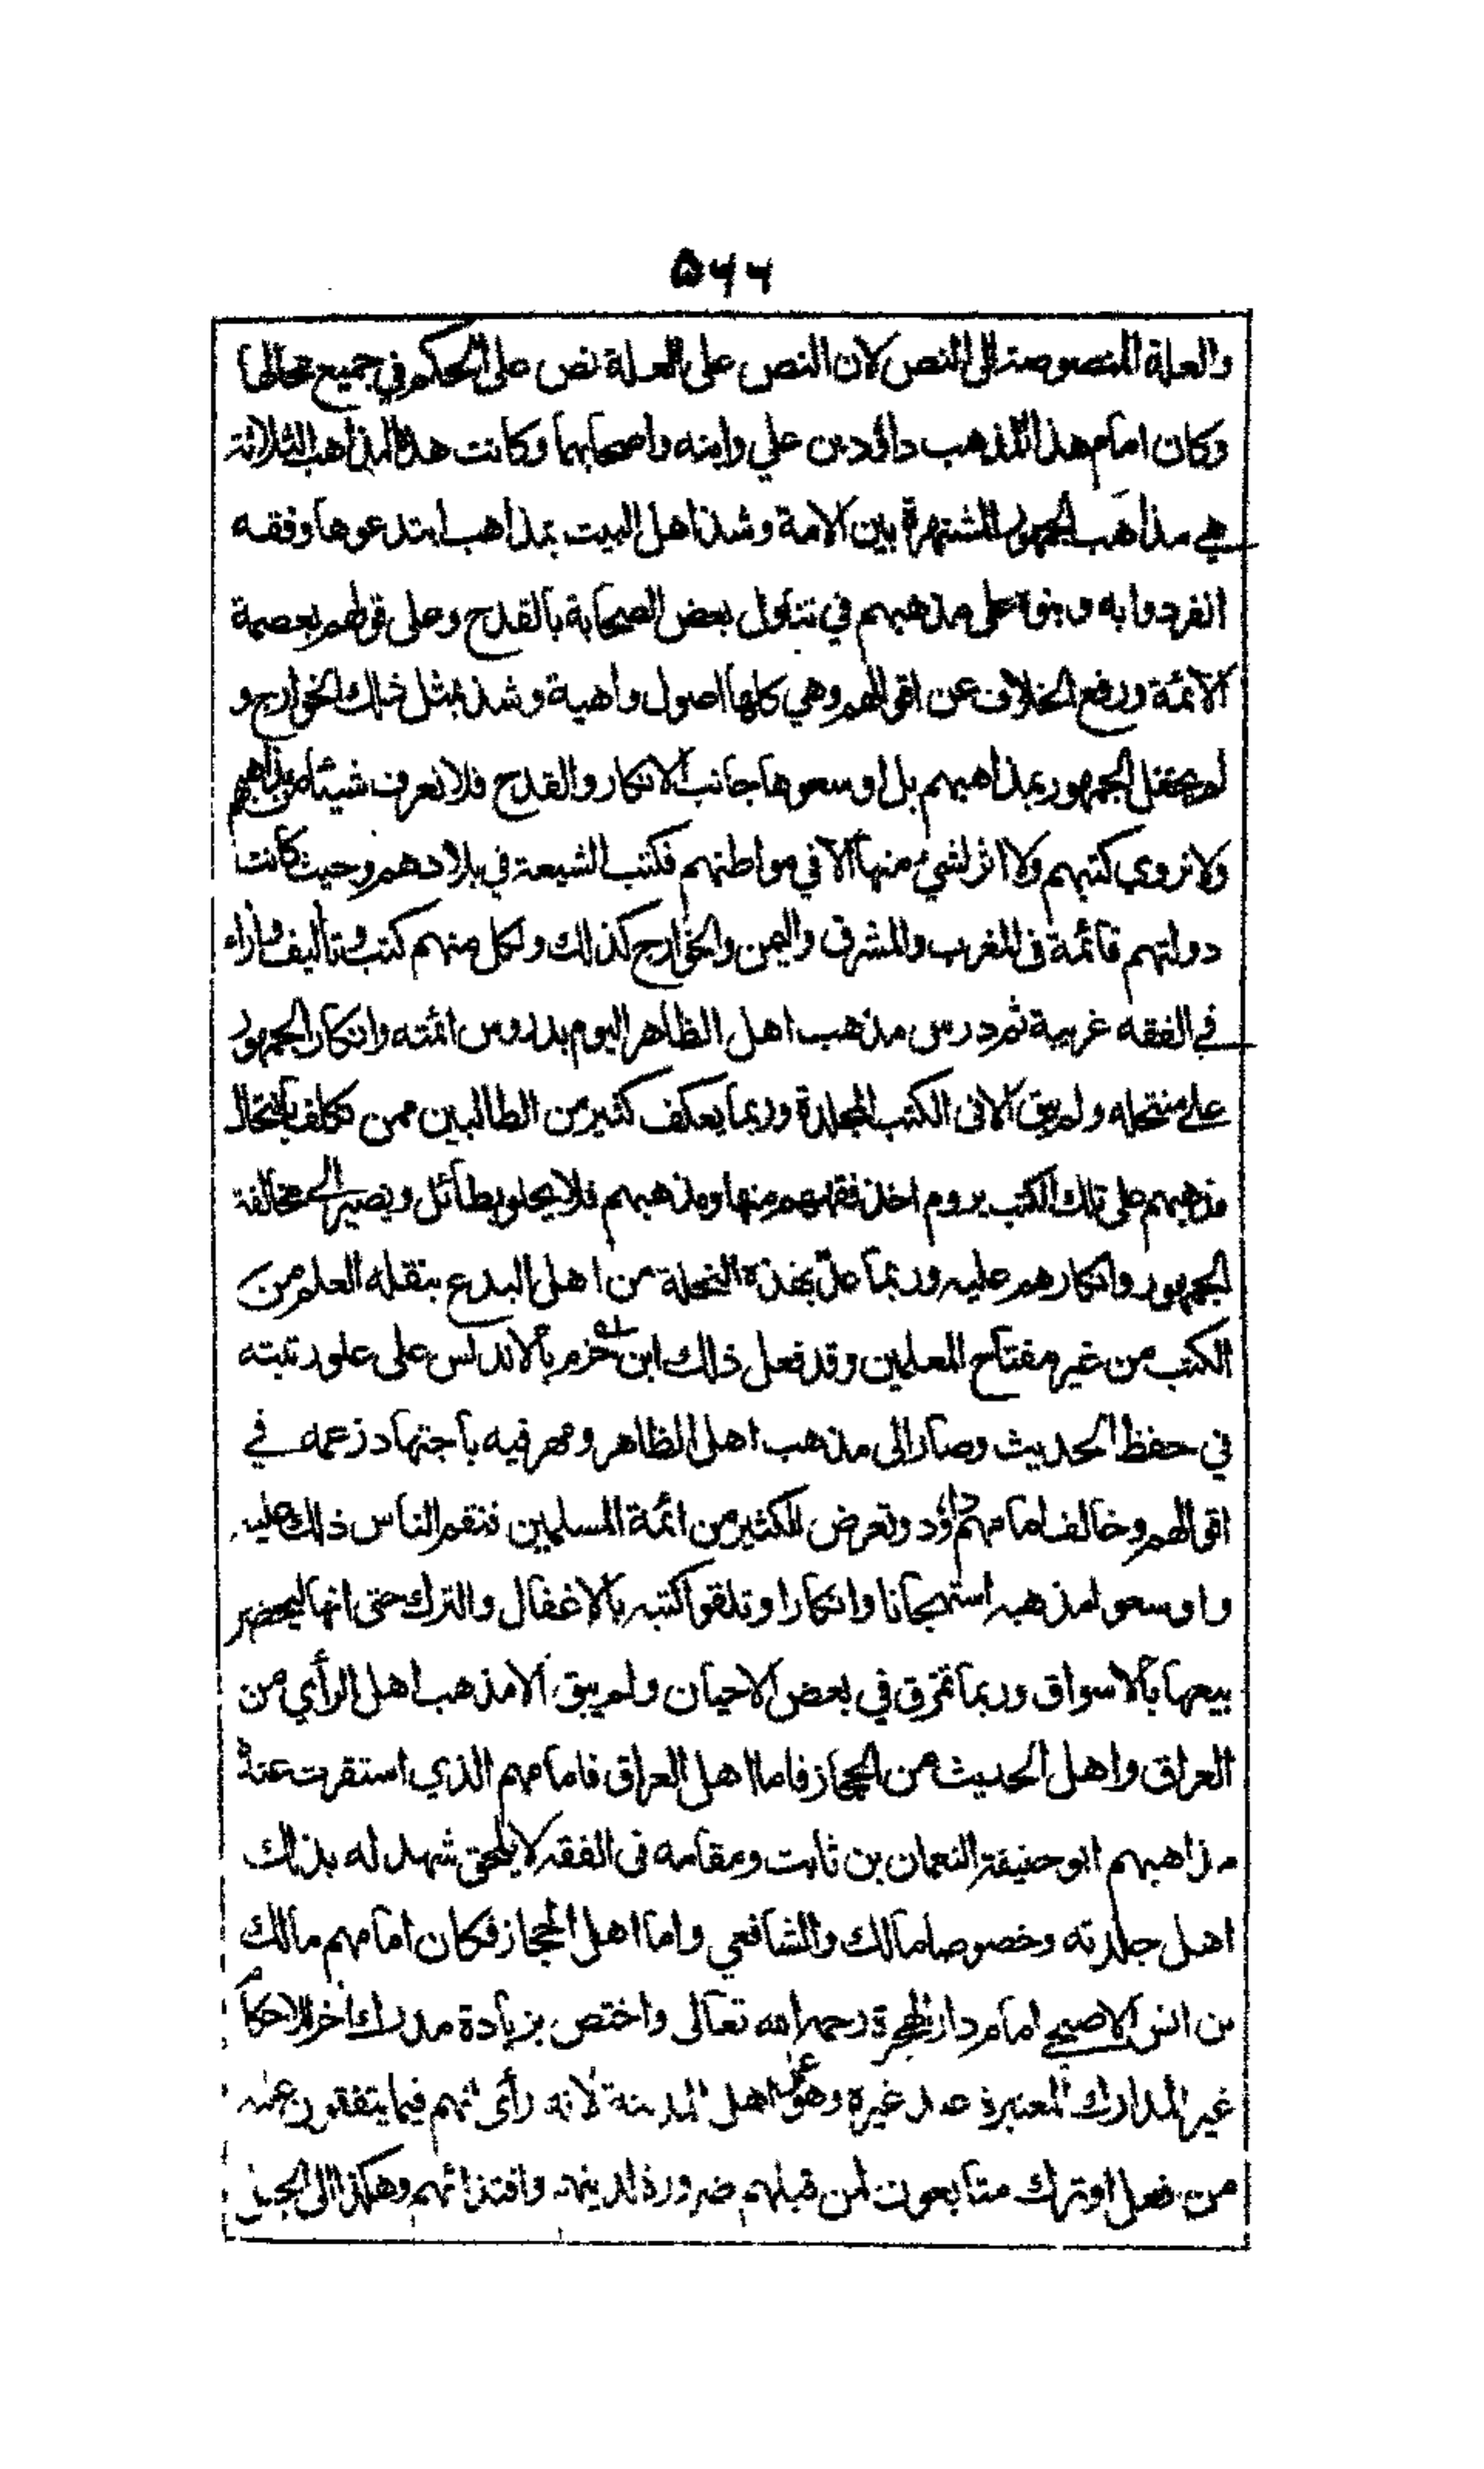 ٥٦٦
والعلة المنصوصة الى النص لان النص على العلة نص على الحكم في جميع محالها
وكان امام هذا المذهب داؤد بن علي وابنه واصحابهما وكانت هذه المذاهب الثلاثة
هي مذاهب الجمهور المشتهرة بين الامة وشذ اهل البيت بمذاهب ابتدعوها وفقه
انفردوا به وبنوه على مذهبهم في تناول بعض الصحابة بالقدح وعلى قولهم بعصمة
الائمة ورفع الخلاف عن اقوالهم وهي كلها اصول واهية وشذ بمثل ذلك الخوارج و
لم يحتفل الجمهور بمذاهبهم بل اوسعوها جانب الانكار والقدح فلا نعرف شيئا من مذاهبهم
ولا نروي كتبهم ولا اثر لشيء منها الا في مواطنهم فكتب الشيعة في بلادهم وحيث كانت
دولتهم قائمة في المغرب والمشرق واليمن والخوارج كذلك ولكل منهم كتب وتاليف واراء
في الفقه غريبة ثم درس مذهب اهل الظاهر اليوم بدروس ائمته وانكار الجمهور
على منتحله ولم يبق الا في الكتب المجلدة وربما يعكف كثير من الطالبين ممن تكلف بانتحال
مذهبهم على تلك الكتب يروم اخذ فقههم منها ومذهبهم فلا يحلو بطائل ويصير الى مخالفة
الجمهور وانكارهم عليه وربما عد بهذه النحلة من اهل البدع بنقله العلم من
الكتب من غير مفتاح المعلمين وقد فعل ذلك ابن حزم بالاندلس على علو رتبته
في حفظ الحديث وصار الى مذهب اهل الظاهر ومهر فيه باجتهاد زعمه في
اقوالهم وخالف امامهم داؤد وتعرض للكثير من ائمة المسلمين فنقم الناس ذلك عليه
واوسعوا مذهبه استهجانا وانكارا وتلقوا كتبه بالاغفال والترك حتى انها ليحضر
بيعها بالاسواق وربما تمزق في بعض الاحيان ولم يبق الا مذهب اهل الرأي من
العراق واهل الحديث من الحجاز فاما اهل العراق فامامهم الذي استقرت عنده
مذاهبهم ابو حنيفة النعمان بن ثابت ومقامه في الفقه لا يلحق شهد له بذلك
اهل جلدته وخصوصا مالك والشافعي واما اهل الحجاز فكان امامهم مالك
بن انس الاصبحي امام دار الهجرة رحمه الله تعالى واختص بزيادة مدرك اخر للاحكام
غير المدارك المعتبرة عند غيره وهو عمل اهل المدينة لانه رأى انهم فيما يتفقون عليه
من فعل او ترك متابعون لمن قبلهم ضرورة لدينهم واقتدائهم وهكذا الى الجيل